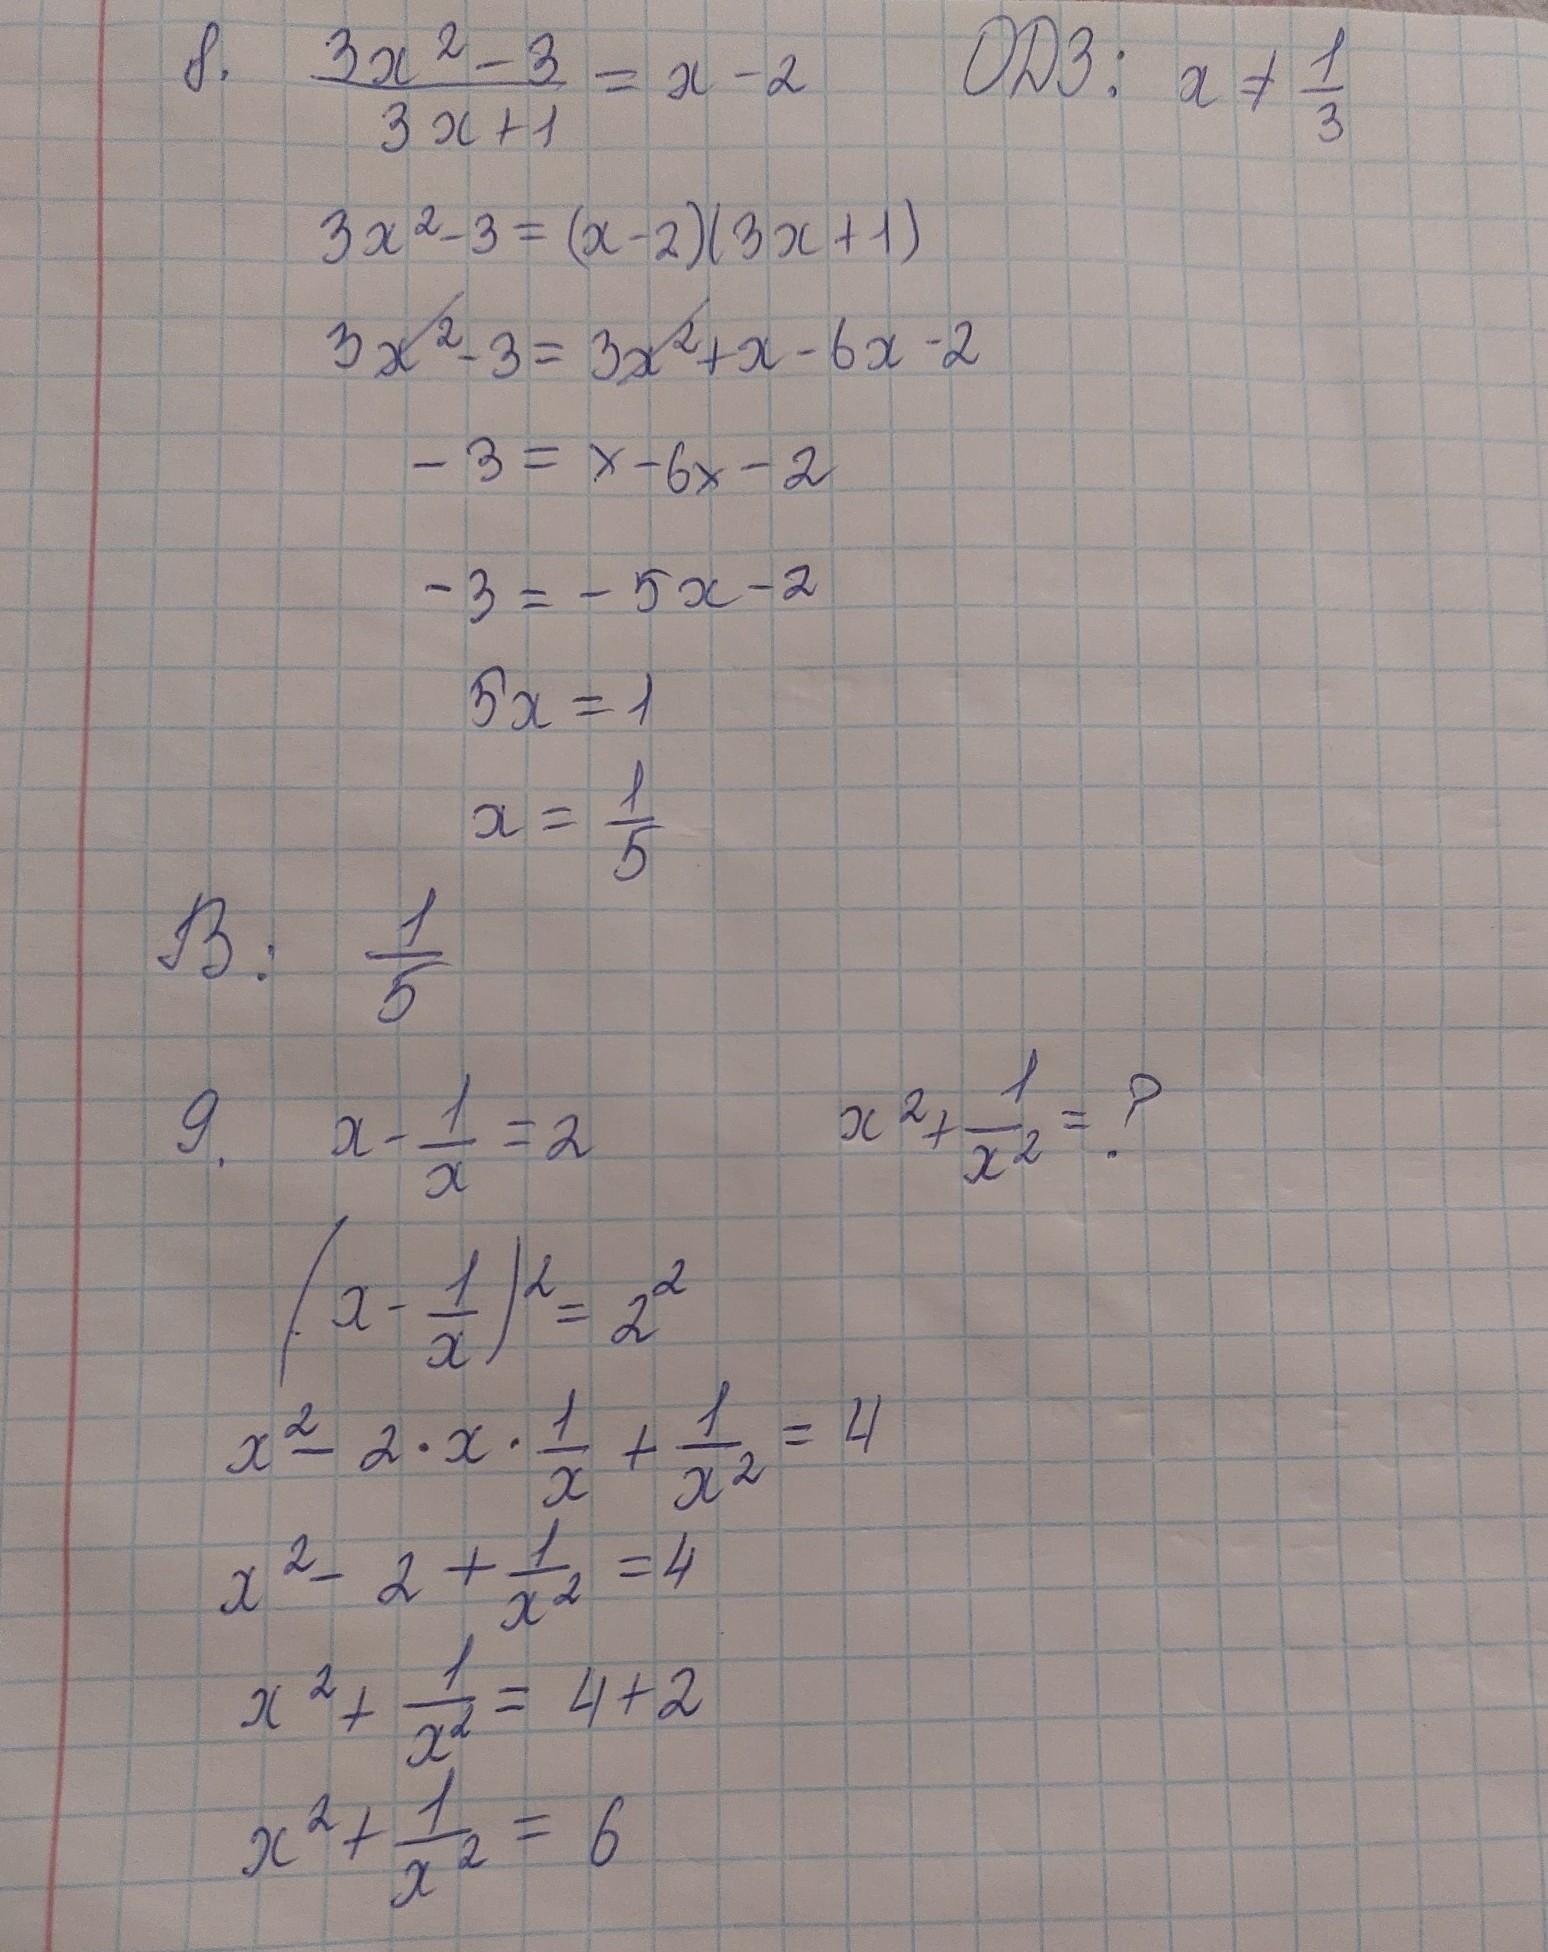 8. (3x² - 3)/(3x + 1) = x - 2 ОДЗ: x ≠ 1/3
3x² - 3 = (x - 2)(3x + 1)
3x² - 3 = 3x² + x - 6x - 2
- 3 = x - 6x - 2
- 3 = - 5x - 2
5x = 1
x = 1/5
В: 1/5
9. x - 1/x = 2 x² + 1/x² = ?
(x - 1/x)² = 2²
x² - 2 · x · 1/x + 1/x² = 4
x² - 2 + 1/x² = 4
x² + 1/x² = 4 + 2
x² + 1/x² = 6